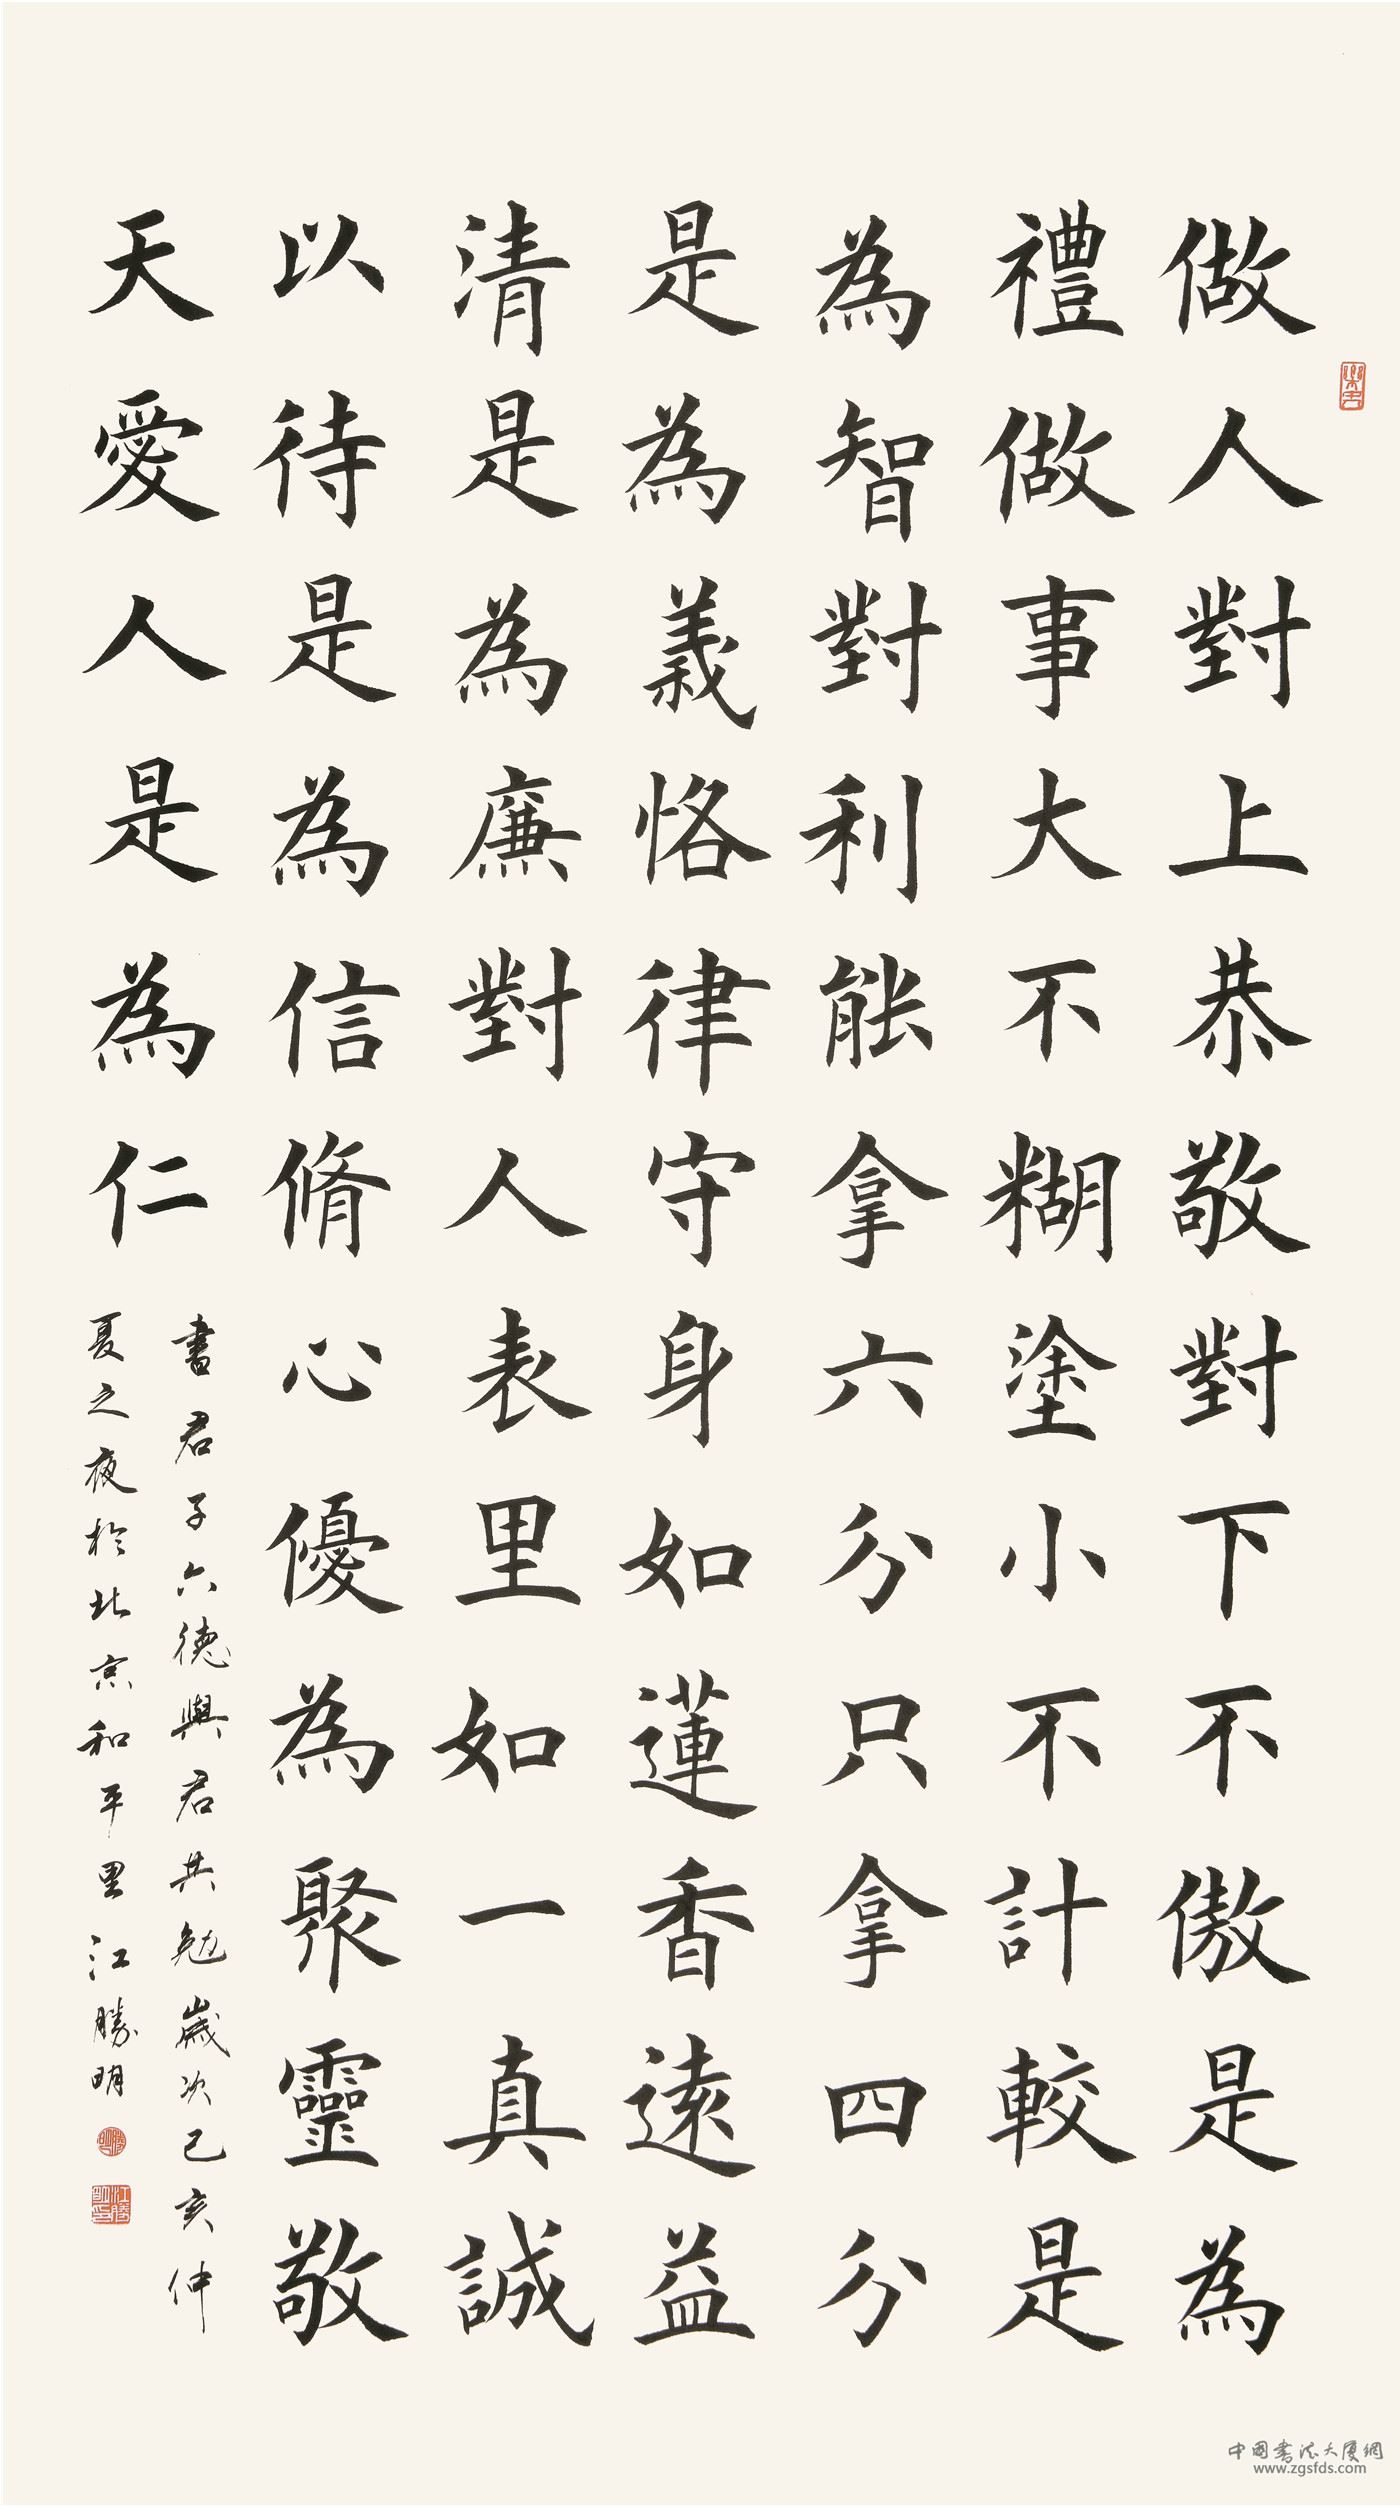 做人對上恭敬對下不傲是為
禮做事大不糊塗小不計較是
為智對利能拿六分只拿四分
是為義恪律守身如蓮香遠益
清是為廉對人表里如一真誠
以待是為信脩心優為聚靈敬
天愛人是為仁
書君子六德與君共勉歲次己亥仲
夏之夜於北京和平里江勝明
江勝明印
中國書法大廈網
www.zgsfds.com